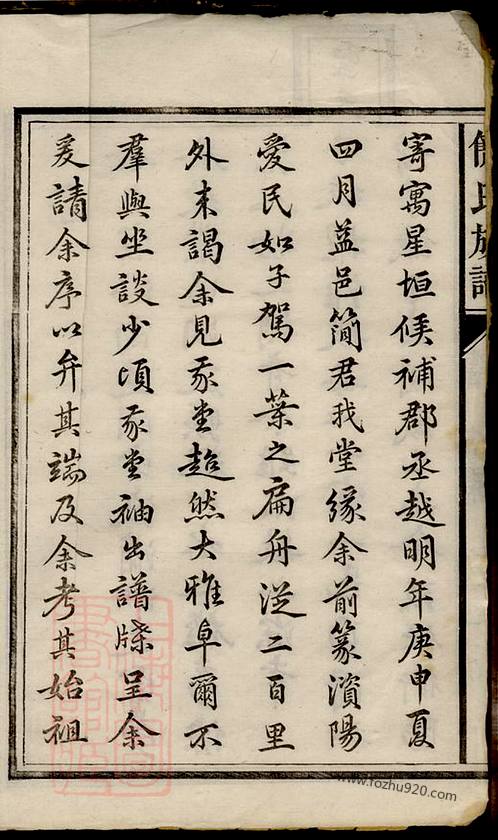 寄寓星垣候補郡丞越明年庚申夏
四月益邑簡君我堂緣余前篆濱陽
愛民如子駕一葉之扁舟從二百里
外来謁余見我堂超然大雅卓爾不
羣與坐談少頃我堂袖出譜牒呈余
爰請余序以弁其端及余考其始祖
氏族譜
www.fozhu920.com